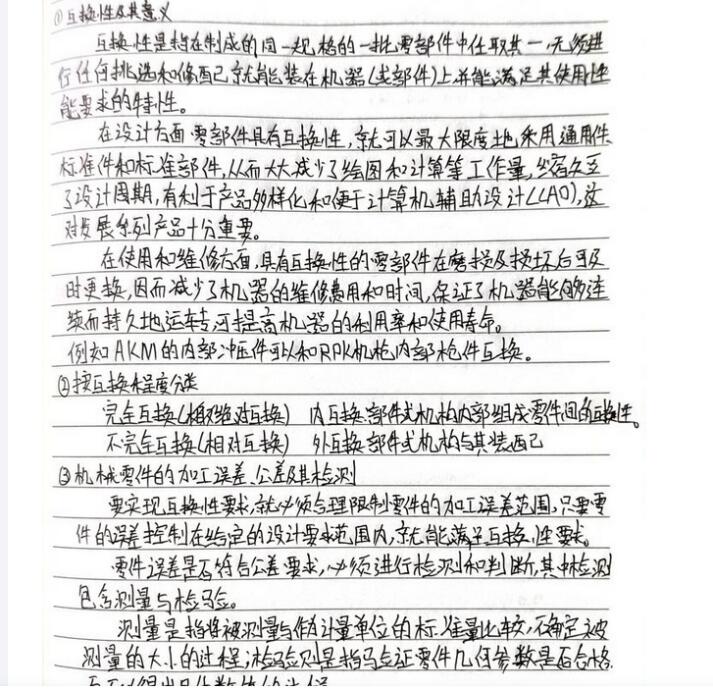 ①互换性及其意义
互换性是指在制成的同一规格的一批零部件中任取其一,无须进
行任何挑选和修配就能装在机器(或部件)上,并能满足其使用性
能要求的特性。
在设计方面,零部件具有互换性,就可以最大限度地采用通用件、
标准件和标准部件,从而大大减少了绘图和计算等工作量,缩短
了设计周期,有利于产品多样化和便于计算机辅助设计(CAD),这
对发展系列产品十分重要。
在使用和维修方面,具有互换性的零部件在磨损及损坏后可及
时更换,因而减少了机器的维修费用和时间,保证了机器能够连
续而持久地运转,可提高机器的利用率和使用寿命。
例如AKM的内部冲压件可以和RPK机枪内部枪件互换。
②按互换程度分类
完全互换(绝对互换) 内互换:部件或机构内部组成零件间的互换性。
不完全互换(相对互换) 外互换:部件或机构与其装配
③机械零件的加工误差、公差及其检测
要实现互换性要求,就必须合理限制零件的加工误差范围,只要零
件的误差控制在给定的设计要求范围内,就能满足互换性要求。
零件误差是否符合公差要求,必须进行检测和判断,其中检测
包含测量与检验。
测量是指将被测量与作为计量单位的标准量比较,确定被
测量的大小的过程;检验则是指验证零件几何参数是否合格